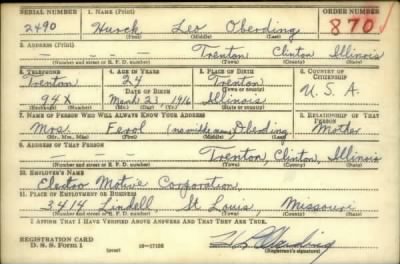 SERIAL NUMBER 1. NAME (Print) ORDER NUMBER
2490 Hurck Leo Oberding 870
(First) (Middle) (Last)
2. ADDRESS (Print)
Trenton Clinton Illinois
(Number and street or R. F. D. number) (Town) (County) (State)
3. TELEPHONE 4. AGE IN YEARS 5. PLACE OF BIRTH 6. COUNTRY OF CITIZENSHIP
Trenton 24 Trenton
DATE OF BIRTH (Town or county) U. S. A.
94X March 23, 1916 Illinois
(Exchange) (Number) (Mo.) (Day) (Yr.) (State or country)
7. NAME OF PERSON WHO WILL ALWAYS KNOW YOUR ADDRESS 8. RELATIONSHIP OF THAT PERSON
Mrs. Ferol (no middle name) Oberding Mother
(Mr., Mrs., Miss) (First) (Middle) (Last)
9. ADDRESS OF THAT PERSON
Trenton, Clinton, Illinois
(Number and street or R. F. D. number) (Town) (County) (State)
10. EMPLOYER'S NAME
Electro Motive Corporation,
11. PLACE OF EMPLOYMENT OR BUSINESS
3414 Lindell, St Louis, Missouri
(Number and street or R. F. D. number) (Town) (County) (State)
I AFFIRM THAT I HAVE VERIFIED ABOVE ANSWERS AND THAT THEY ARE TRUE.
REGISTRATION CARD
D. S. S. FORM 1 (over) 16—17105 (Registrant's signature)